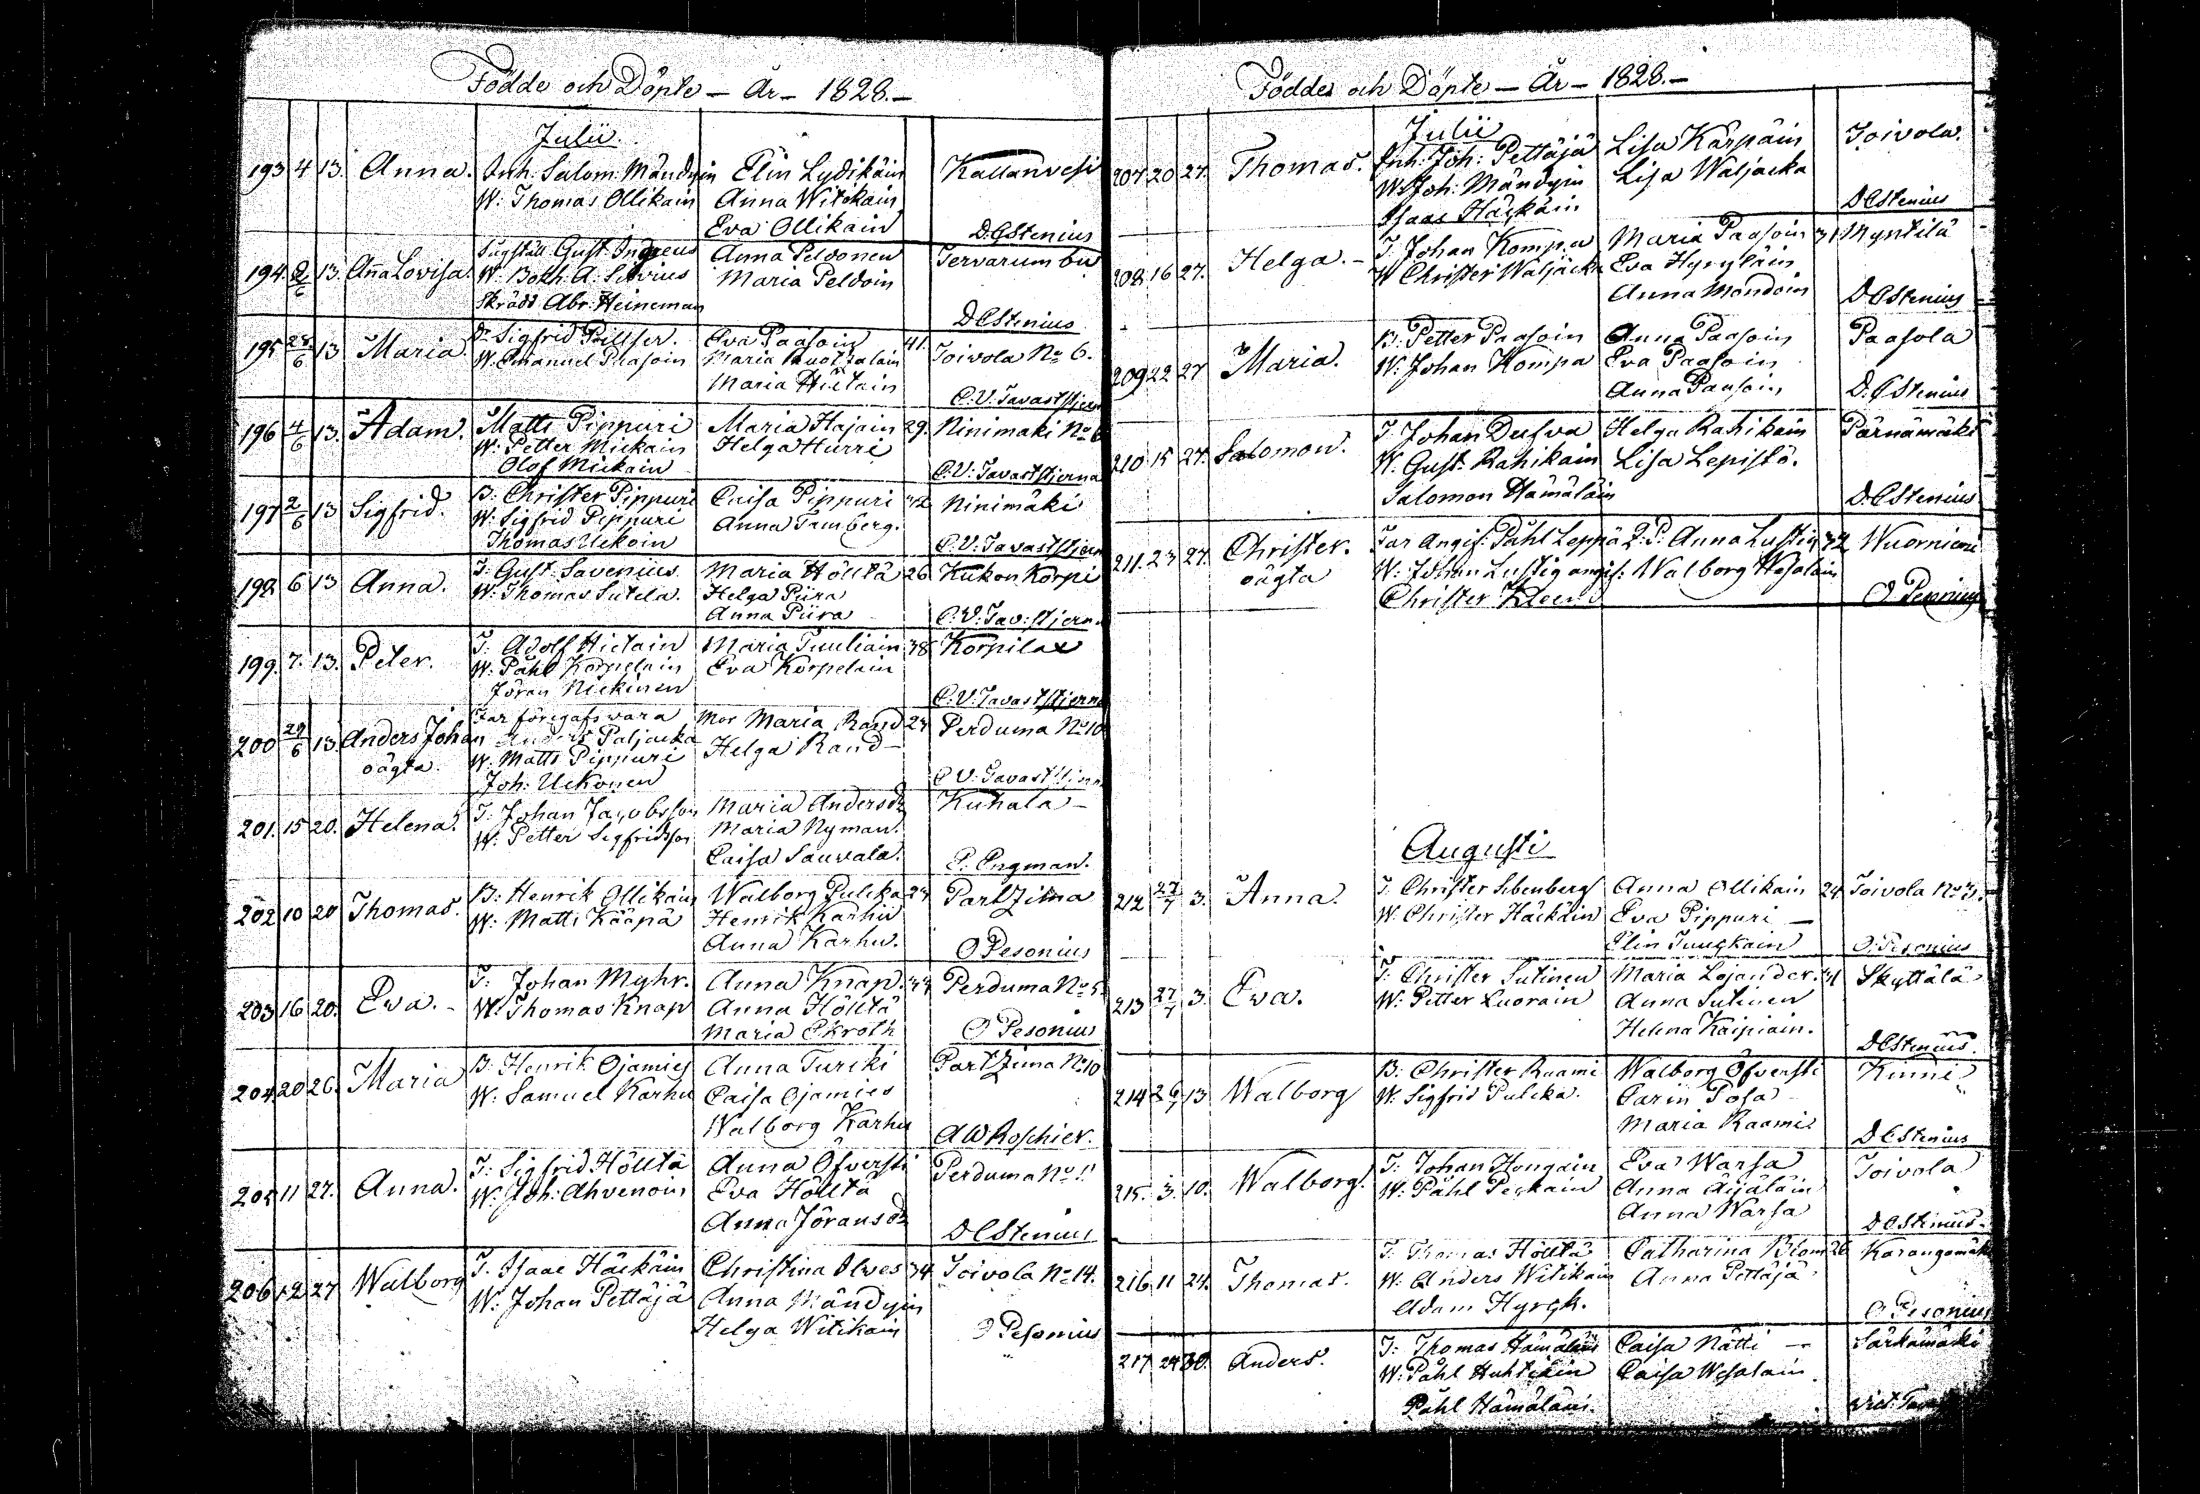 Födde och Döpte — År — 1828. —
Julii.
193 4 13. Anna. Inh. Salom: Mändyin Elin Lydikäin Kallanvesi
W: Thomas Ollikain Anna Witikain
Eva Ollikain D. Estenius
194. 2/6 13. Anna Lovisa. Gust. Anna Peldonen Tervarumbu
W. A. Maria Peldoin
Skrädd Abr: Heineman D Estenius
195 28/6 13 Maria. Dr Sigfrid Eva Paasoin 41. Toivola No 6.
W. Emanuel Paasoin Maria
Maria Hietain C. V: Tavaststjerna
196 4/6 13. Adam. Matts Pippuri Maria Hajain 29. Ninimäki No 6
W: Petter Mickain Helga Hurri
Olof Mickain C: V: Tavaststjerna
197 2/6 13 Sigfrid. B: Christer Pippuri Caisa Pippuri 42 Ninimäki
W: Sigfrid Pippuri Anna Tamberg.
Thomas Uckoin C: V: Tavaststjern
198 6 13 Anna. T: Gust: Savenius Maria Hölltä 26 Kukon Korpi
W: Thomas Sutela. Helga Piira
Anna Piira C: V: Tav: stjern
199. 7. 13. Peter. T: Adolf Hietain Maria Tuuliain 38 Korpilax
W: Påhl Korpelain Eva Korpelain
Jöran Nickinen C: V: Tavaststjerna
200 29/6 13 Anders Johan Far föregafs vara Mor Maria Rand 23 Perduma No 10
oägta. Anders Paljacka Helga Rand —
W: Matts Pippuri
Joh: Uckonen C V: Tavaststjern
201. 15 20. Helena. T: Johan Jacobsson Maria Andersdr Kuhala —
W: Petter Sigfridsson Maria Nyman.
Caisa Sauvala. P. Engman.
202 10 20 Thomas. B: Henrik Ollikain Walborg Pulcka 23 Partzima
W: Matti Kääpä Henrik Karhu
Anna Karhu. O Pesonius
203 16 20. Eva. - T: Johan Myhr. Anna Knap. 44 Perduma No 5.
W: Thomas Knap Anna Hölltä
Maria Ekroth O Pesonius
204 20 26. Maria B: Henrik Ojamies Anna Turcki Partzima No 10
W: Samuel Karhu Caisa Ojamies
Walborg Karhu A W Roschier.
205 11 27. Anna. T: Sigfrid Hölltä Anna Öfversti Perduma No 11
W: Joh: Ahvenoin Eva Hölltä
Anna Jöransdr D Estenius
206 12 27 Walborg T. Isaac Häckäin Christina Ilves 34 Toivola No 14.
W: Johan Pettäjä Anna Mändyin
Helga Witikain O Pesonius
Födde och Döpte — År — 1828. —
Julii
207 20 27. Thomas. Inh: Joh: Pettäjä Lisa Kärpäin Toivola.
W: Joh: Mändyin Lisa Wäljacka
Isaac Häckäin D Estenius
208. 16 27. Helga. — T. Johan Kompa Maria Paasoin 31 Myntilä
W Christer Wäljäcka Eva Hyryläin
Anna Mändoin D Estenius
209 22 27 Maria. B: Petter Paasoin Anna Paasoin Paasola
W: Johan Kompa Eva Paasoin
Anna Paasoin D. Estenius
210 15 27. Salomon. T. Johan Dufva Helga Rahikain Pärnämäki
W: Gust: Rahikain Lisa Lepistö.
Salomon Hämäläin D. Estenius
211. 23 27. Christer. Far Angif: Påhl Leppä Q. P. Anna Lustig 32 Wuorniemi
oägta W: Johan Lustig angif: Walborg Wesalain
Christer Kleen O Pesonius
Augusti
212 27/7 3. Anna. T. Christer Sibenberg Anna Ollikain 24 Toivola No 3.
W Christer Häckäin Eva Pippuri —
Elin Tuuskain O. Pesonius
213 27/7 3. Eva. T: Christer Sutinen Maria Lojander. 41 Skyttälä
W: Petter Luorain Anna Sutinen
Helena Kaipiain. D Estenius.
214 26/7 13 Walborg B: Christer Raami Walborg Öfversti Kinni
W. Sigfrid Pulcka. Carin Posa
Maria Raami D Estenius
215. 3. 10. Walborg. T: Johan Hongain Eva Warsa Toivola
W: Påhl Peckain Anna Äijäläin
Anna Warsa D Estenius.
216. 11 24. Thomas. T. Thomas Hölltä Catharina Blom 26 Karangomäki
W: Anders Witikain Anna Pettäjä
Adam Hyrck. O Pesonius
217 24 30. Anders. T: Thomas Hämäläin Caisa Nätti — Särkämäki
W: Påhl Huhtiain Caisa Wesalain.
Påhl Hämäläin.